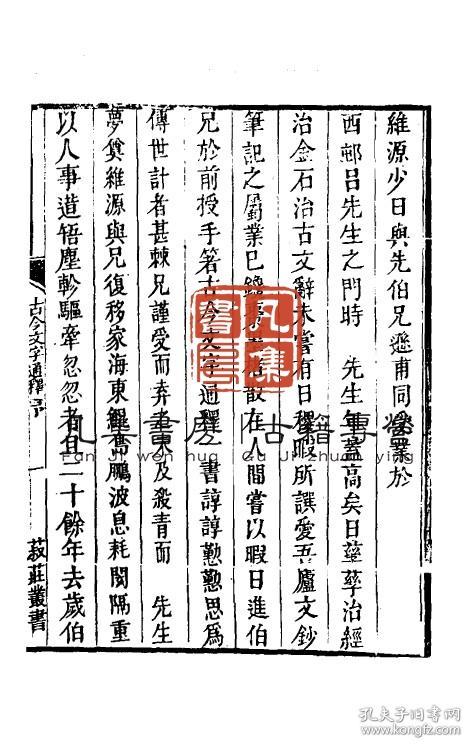 維源少日與先伯兄遜甫同學業於
西邨呂先生之門時　先生年蓋高矣日孳孳治經
治金石治古文辭未嘗有日稷暇所譔愛吾廬文鈔
筆記之屬業已鋟　　散在人間嘗以暇日進伯
兄於前授手箸古今文字通釋一書諄諄懃懃思爲
傳世計者甚棘兄謹受而弆者未及殺青而　先生
夢奠維源與兄復移家海東　鵬波息耗閡隔重
以人事遒牾塵軫驅牽忽忽者且二十餘年去歲伯
古今文字通釋 序
菽莊叢書
凡集書
Fan Ji Gu Ji Zhuan ying
孔夫子旧书网
www.kongfz.com